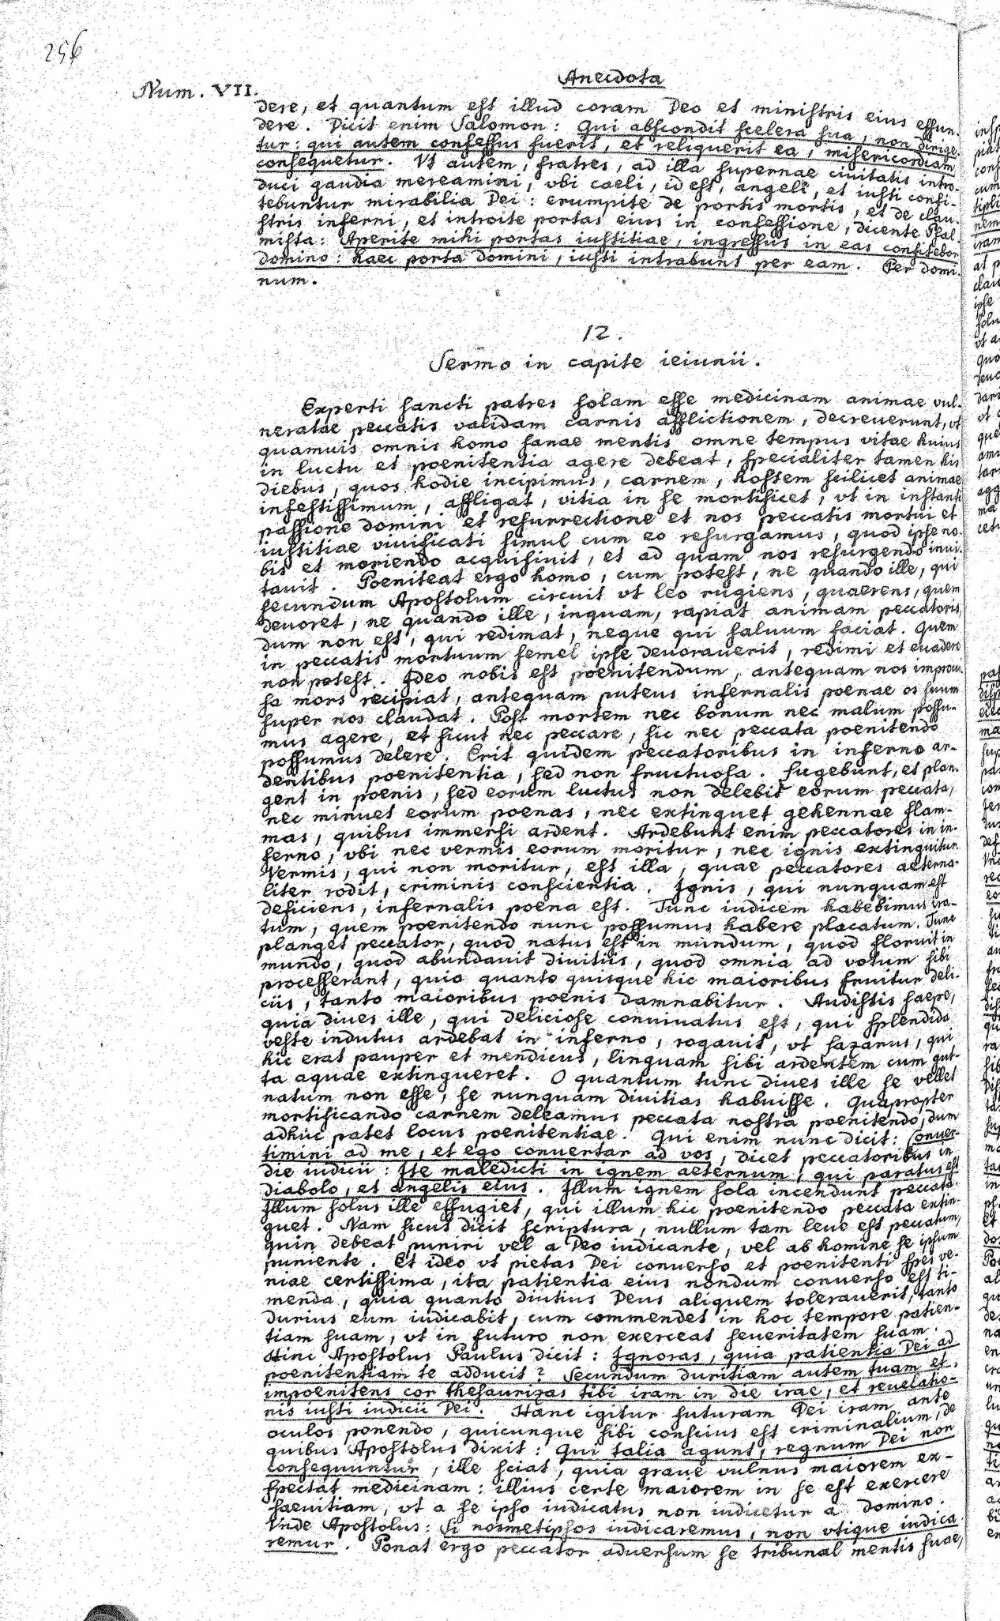 256
Num. VII.
Anecdota
dere, et quantum est illud coram Deo et ministris eius effun-
dere. Dicit enim Salomon: Qui abscondit scelera sua, non dirige-
tur: qui autem confessus fuerit, et reliquerit ea, misericordiam
consequetur. Vt autem, fratres, ad illa supernae ciuitatis intro-
duci gaudia mereamini, vbi caeli, id est, angeli, et iusti confi-
tebuntur mirabilia Dei: erumpite de portis mortis, et de clau-
stris inferni, et introite portas eius in confessione, dicente Psal-
mista: Aperite mihi portas iustitiae, ingressus in eas confitebor
domino: haec porta domini, iusti intrabunt per eam. Per domi-
num.
12.
Sermo in capite ieiunii.
Experti sancti patres solam esse medicinam animae vul-
neratae peccatis validam carnis afflictionem, decreuerunt, vt
quamuis omnis homo sanae mentis omne tempus vitae huius
in luctu et poenitentia agere debeat, specialiter tamen his
diebus, quos hodie incipimus, carnem, hostem scilicet animae
infestissimum, affligat, vitia in se mortificet, vt in instanti
passione domini et resurrectione et nos peccatis mortui et
iustitiae viuificati simul cum eo resurgamus, quod ipse no-
bis et moriendo acquisiuit, et ad quam nos resurgendo inui-
tauit. Poeniteat ergo homo, cum potest, ne quando ille, qui
secundum Apostolum circuit vt leo rugiens, quaerens, quem
deuoret, ne quando ille, inquam, rapiat animam peccatoris,
dum non est, qui redimat, neque qui saluum faciat. Quem
in peccatis mortuum semel ipse deuorauerit, redimi et euadere
non potest. Ideo nobis est poenitendum, antequam nos improui-
sa mors recipiat, antequam puteus infernalis poenae os suum
super nos claudat. Post mortem nec bonum nec malum possu-
mus agere, et sicut nec peccare, sic nec peccata poenitendo
possumus delere. Erit quidem peccatoribus in inferno ar-
dentibus poenitentia, sed non fructuosa. Lugebunt, et plan-
gent in poenis, sed eorum luctus non delebit eorum peccata,
nec minuet eorum poenas, nec extinguet gehennae flam-
mas, quibus immersi ardent. Ardebunt enim peccatores in in-
ferno, vbi nec vermis eorum moritur, nec ignis extinguitur.
Vermis, qui non moritur, est illa, quae peccatores aeterna-
liter rodit, criminis conscientia. Ignis, qui nunquam est
deficiens, infernalis poena est. Tunc iudicem habebimus ira-
tum, quem poenitendo nunc possumus habere placatum. Tunc
planget peccator, quod natus est in mundum, quod floruit in
mundo, quod abundauit diuitiis, quod omnia ad votum sibi
processerant, quia quanto quisque hic maioribus fruitur deli-
ciis, tanto maioribus poenis damnabitur. Audistis saepe,
quia diues ille, qui deliciose conuiuatus est, qui splendida
veste indutus ardebat in inferno, rogauit, vt Lazarus, qui
hic erat pauper et mendicus, linguam sibi ardentem cum gut-
ta aquae extingueret. O quantum tunc diues ille se vellet
natum non esse, se nunquam diuitias habuisse. Quapropter
mortificando carnem deleamus peccata nostra poenitendo, dum
adhuc patet locus poenitentiae. Qui enim nunc dicit: Conuer-
timini ad me, et ego conuertar ad vos, dicet peccatoribus in
die iudicii: Ite maledicti in ignem aeternum, qui paratus est
diabolo, et angelis eius. Illum ignem sola incendunt peccata.
Illum solus ille effugiet, qui illum hic poenitendo peccata extin-
guet. Nam sicut dicit scriptura, nullum tam leue est peccatum,
quin debeat puniri vel a Deo iudicante, vel ab homine se ipsum
puniente. Et ideo vt pietas Dei conuerso et poenitenti spes ve-
niae certissima, ita patientia eius nondum conuerso est ti-
menda, quia quanto diutius Deus aliquem tolerauerit, tanto
durius eum iudicabit, cum commendet in hoc tempore patien-
tiam suam, vt in futuro non exerceat seueritatem suam.
Hinc Apostolus Paulus dicit: Ignoras, quia patientia Dei ad
poenitentiam te adducit? Secundum duritiam autem tuam et
impoenitens cor thesaurizas tibi iram in die irae, et reuelatio-
nis iusti iudicii Dei. Hanc igitur futuram Dei iram ante
oculos ponendo, quicunque sibi conscius est criminalium, de
quibus Apostolus dixit: Qui talia agunt, regnum Dei non
consequuntur, ille sciat, quia graue vulnus maiorem ex-
spectat medicinam: illius certe maiorem in se est exercere
saeuitiam, vt a se ipso iudicatus non iudicetur a domino.
Vnde Apostolus: Si nosmetipsos iudicaremus, non vtique iudica-
remur. Ponat ergo peccator aduersum se tribunal mentis suae,